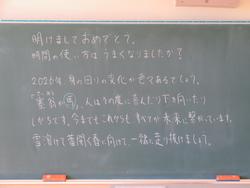 明けましておめでとう。
時間の使い方はうまくなりましたか？
2026年、身の回りの変化が色々あるでしょう。
「塞翁が馬」、人はその度に喜んだり下を向いたり
しがちです。今までもこれからもすべてが未来に繋がっています。
雪溶けて蕾開く春に向けて、一緒に走り抜けましょう。